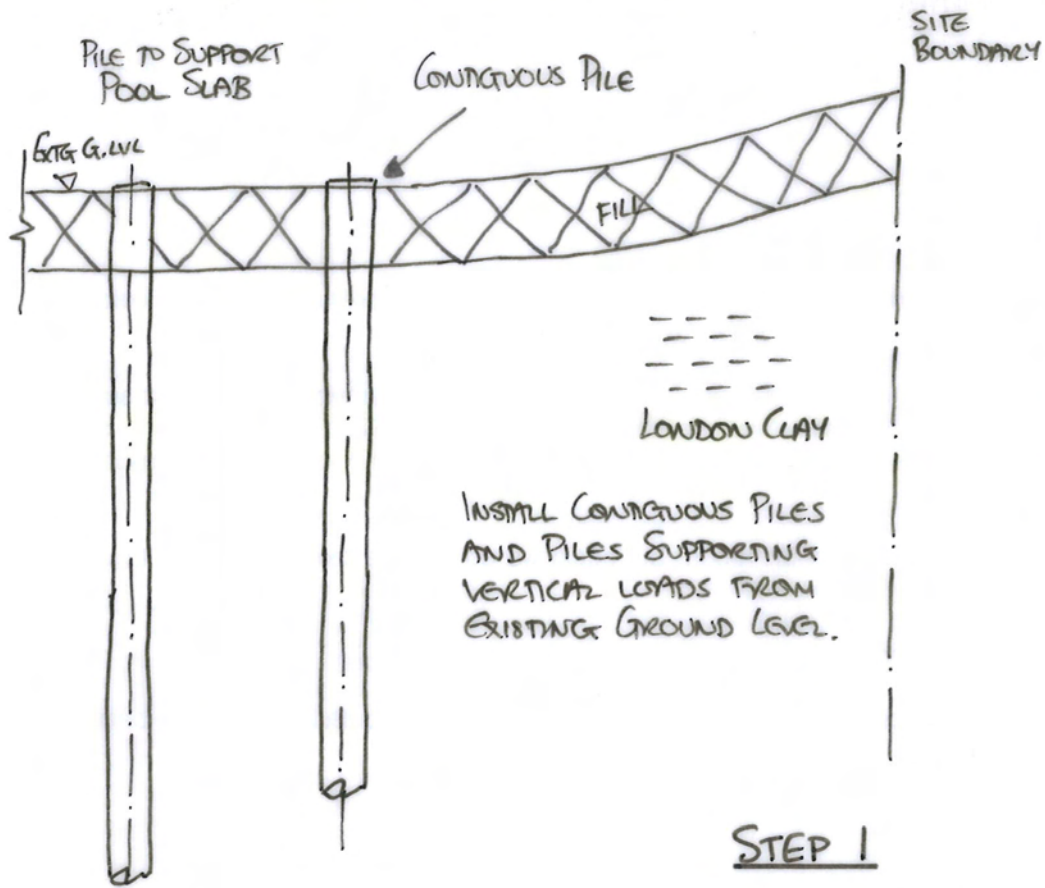 SITE
BOUNDARY
PILE TO SUPPORT
POOL SLAB
CONTIGUOUS PILE
EXTG G.LVL
FILL
LONDON CLAY
INSTALL CONTIGUOUS PILES
AND PILES SUPPORTING
VERTICAL LOADS FROM
EXISTING GROUND LEVEL.
STEP 1